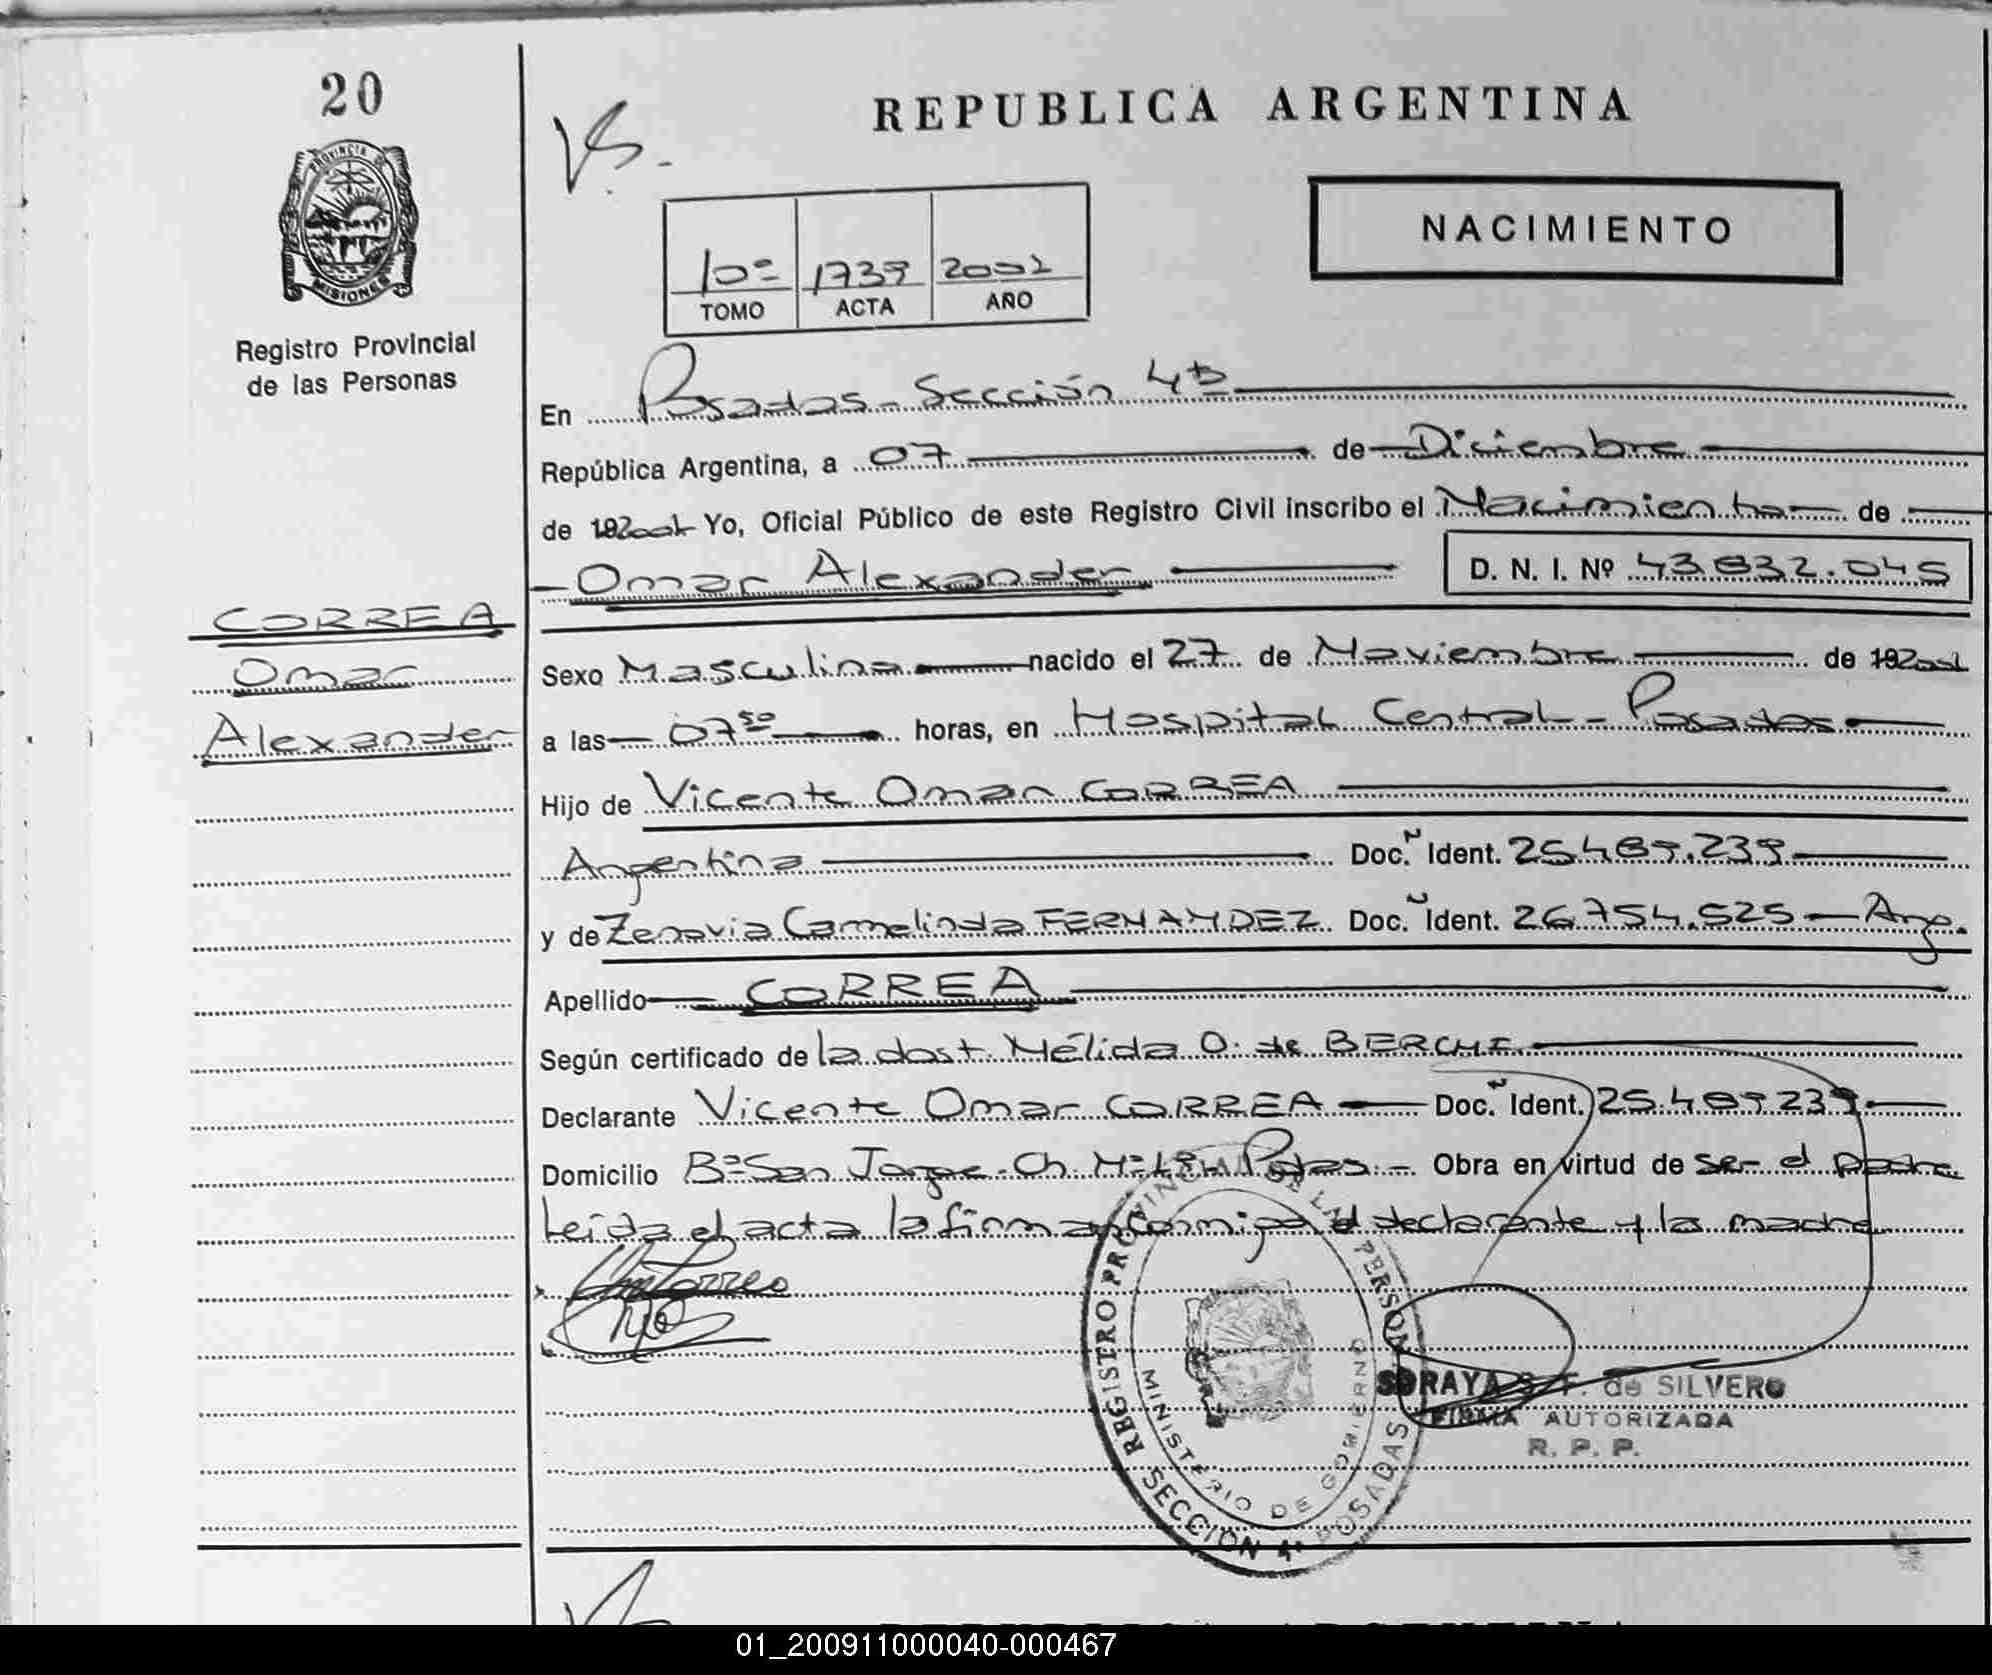 20
REPUBLICA ARGENTINA
PROVINCIA DE
MISIONES
VS.
NACIMIENTO
10º 1739 2001
TOMO ACTA AÑO
Registro Provincial
de las Personas
En Posadas - Sección 4ta
República Argentina, a 07 de Diciembre
de 192001 Yo, Oficial Público de este Registro Civil inscribo el Nacimiento de
Omar Alexander D. N. I. Nº 43.832.045
CORREA
Omar
Alexander
Sexo Masculino nacido el 27 de Noviembre de 192001
a las 07 50 horas, en Hospital Central - Posadas
Hijo de Vicente Omar CORREA
Argentina Doc. Ident. 25.489.239
y de Zenovia Carmelinda FERNANDEZ Doc. Ident. 26.754.525 - Arg.
Apellido CORREA
Según certificado de la dost. Nélida O. de
Declarante Vicente Omar CORREA Doc. Ident. 25.489.239
Domicilio Bº San Jorge - Ch. Nº Pdas. - Obra en virtud de ser el padre
Leída el acta la firman conmigo el declarante y la madre
REGISTRO PROVINCIAL DE LAS PERSONAS
MINISTERIO DE GOBIERNO
SECCION 4ª POSADAS
SORAYA S. F. de SILVERO
FIRMA AUTORIZADA
R. P. P.
01_200911000040-000467